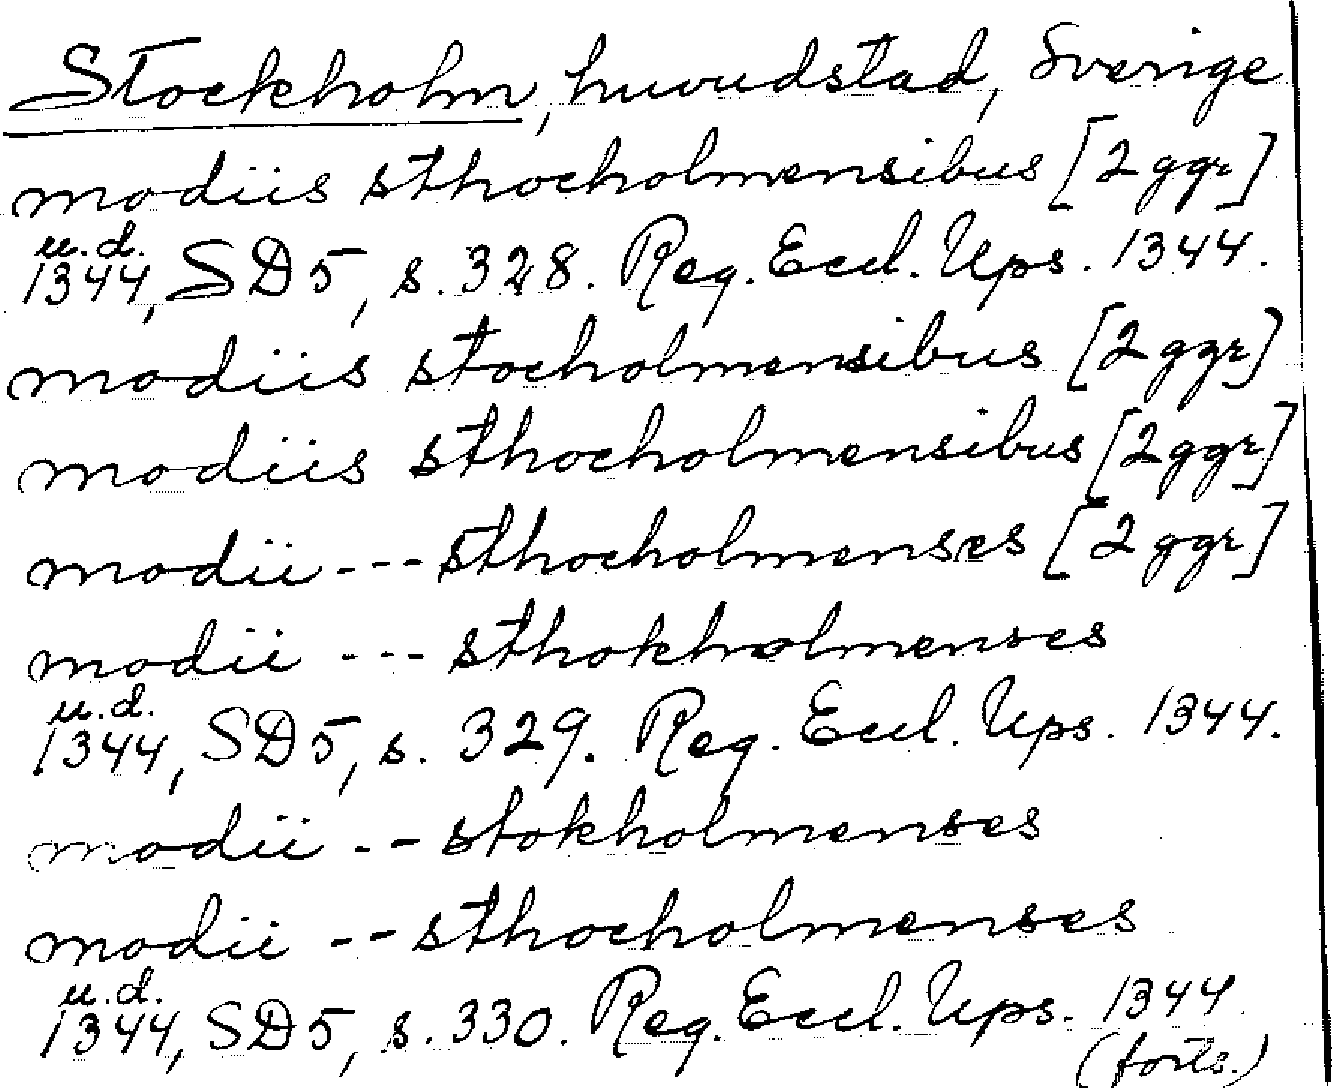 Stockholm, huvudstad, Sverige
modiis sthocholmensibus [2 ggr]
u.d.
1344, SD5, s. 328. Reg. Eccl. Ups. 1344.
modiis stocholmensibus [2 ggr]
modiis sthocholmensibus [2 ggr]
modii --- sthocholmenses [2 ggr]
modii --- sthokholmenses
u.d.
1344, SD5, s. 329. Reg. Eccl. Ups. 1344.
modii -- stokholmenses
modii -- sthocholmenses
u.d.
1344, SD5, s. 330. Reg. Eccl. Ups. 1344
(forts.)